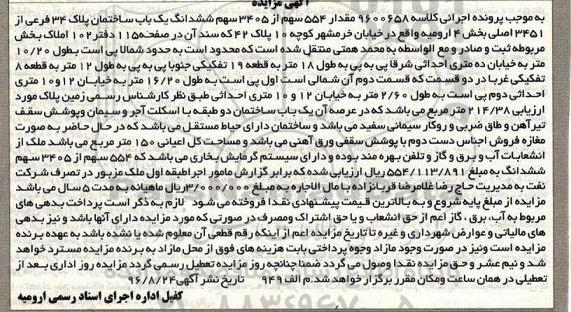 آگهی مزایده
به موجب پرونده اجرائی کلاسه ۹۶۰۰۶۵۸ مقدار ۵۵۴ سهم از ۳۴۰۵ سهم ششدانگ یک باب ساختمان پلاک ۳۴ فرعی از
۳۴۵۱ اصلی بخش ۴ ارومیه واقع در خیابان خرمشهر کوچه ۱۰ پلاک ۴۲ که سند آن در صفحه ۱۱۵ دفتر ۱۰۲ املاک بخش
مربوطه ثبت و صادر و مع الواسطه به محمد همتی منتقل شده است که محدود است به حدود شمالا پی است بطول ۱۰/۲۰
متر به خیابان ده متری احداثی شرقا پی به پی به طول ۱۸ متر به قطعه ۱۹ تفکیکی جنوبا پی به پی به طول ۱۲ متر به قطعه ۸
تفکیکی غربا در دو قسمت که قسمت دوم آن شمالی است اول پی است به طول ۱۶/۲۰ متر به خیابان ۱۲ و ۱۰ متری
احداثی دوم پی است به طول ۲/۶۰ متر به خیابان ۱۲ و ۱۰ متری احداثی طبق نظر کارشناس رسمی زمین پلاک مورد
ارزیابی ۲۱۴/۳۸ متر مربع می باشد که در عرصه آن یک باب ساختمان دو طبقه با اسکلت آجر و سیمان وپوشش سقف
تیرآهن و طاق ضربی و روکار سیمانی سفید می باشد و ساختمان دارای حیاط مستقل می باشد که در حال حاضر به صورت
مغازه فروش اجناس دست دوم با پوشش سقفی ورق آهنی می باشد و مساحت کل اعیانی ۱۵۰ متر مربع می باشد ملک از
انشعابات آب و برق و گاز و تلفن بهره مند بوده و دارای سیستم گرمایش بخاری می باشد که ۵۵۴ سهم از ۳۴۰۵ سهم
ششدانگ به مبلغ ۵۵۴/۱۱۳/۸۹۱ ریال ارزیابی شده که برابر گزارش مامور اجراطبقه اول ملک مزبور در تصرف شرکت
نفت به مدیریت حاج رضا غلامرضا قربانزاده با مال الاجاره به مبلغ ۳/۰۰۰/۰۰۰ ریال ماهیانه به مدت ۵ سال می باشد
مزایده از مبلغ پایه شروع و به بالاترین قیمت پیشنهادی نقدا فروخته می شود لازم به ذکر است پرداخت بدهی های
مربوط به آب، برق ، گاز اعم از حق انشعاب و یا حق اشتراک ومصرف در صورتی که مورد مزایده دارای آنها باشد و نیز بدهی
های مالیاتی و عوارض شهرداری و غیره تا تاریخ مزایده اعم از اینکه رقم قطعی آن معلوم شده یا نشده باشد به عهده برنده
مزایده است ونیز در صورت وجود مازاد وجوه پرداختی بابت هزینه های فوق از محل مازاد به برنده مزایده مسترد خواهد
شد و نیم عشر و حق مزایده نقدا وصول می گردد ضمنا چنانچه روز مزایده تعطیل رسمی گردد مزایده روز اداری بعد از
تعطیلی در همان ساعت ومکان مقرر برگزار خواهد شد.م الف ۹۴۹ تاریخ نشر آگهی ۹۶/۸/۲۴
کفیل اداره اجرای اسناد رسمی ارومیه